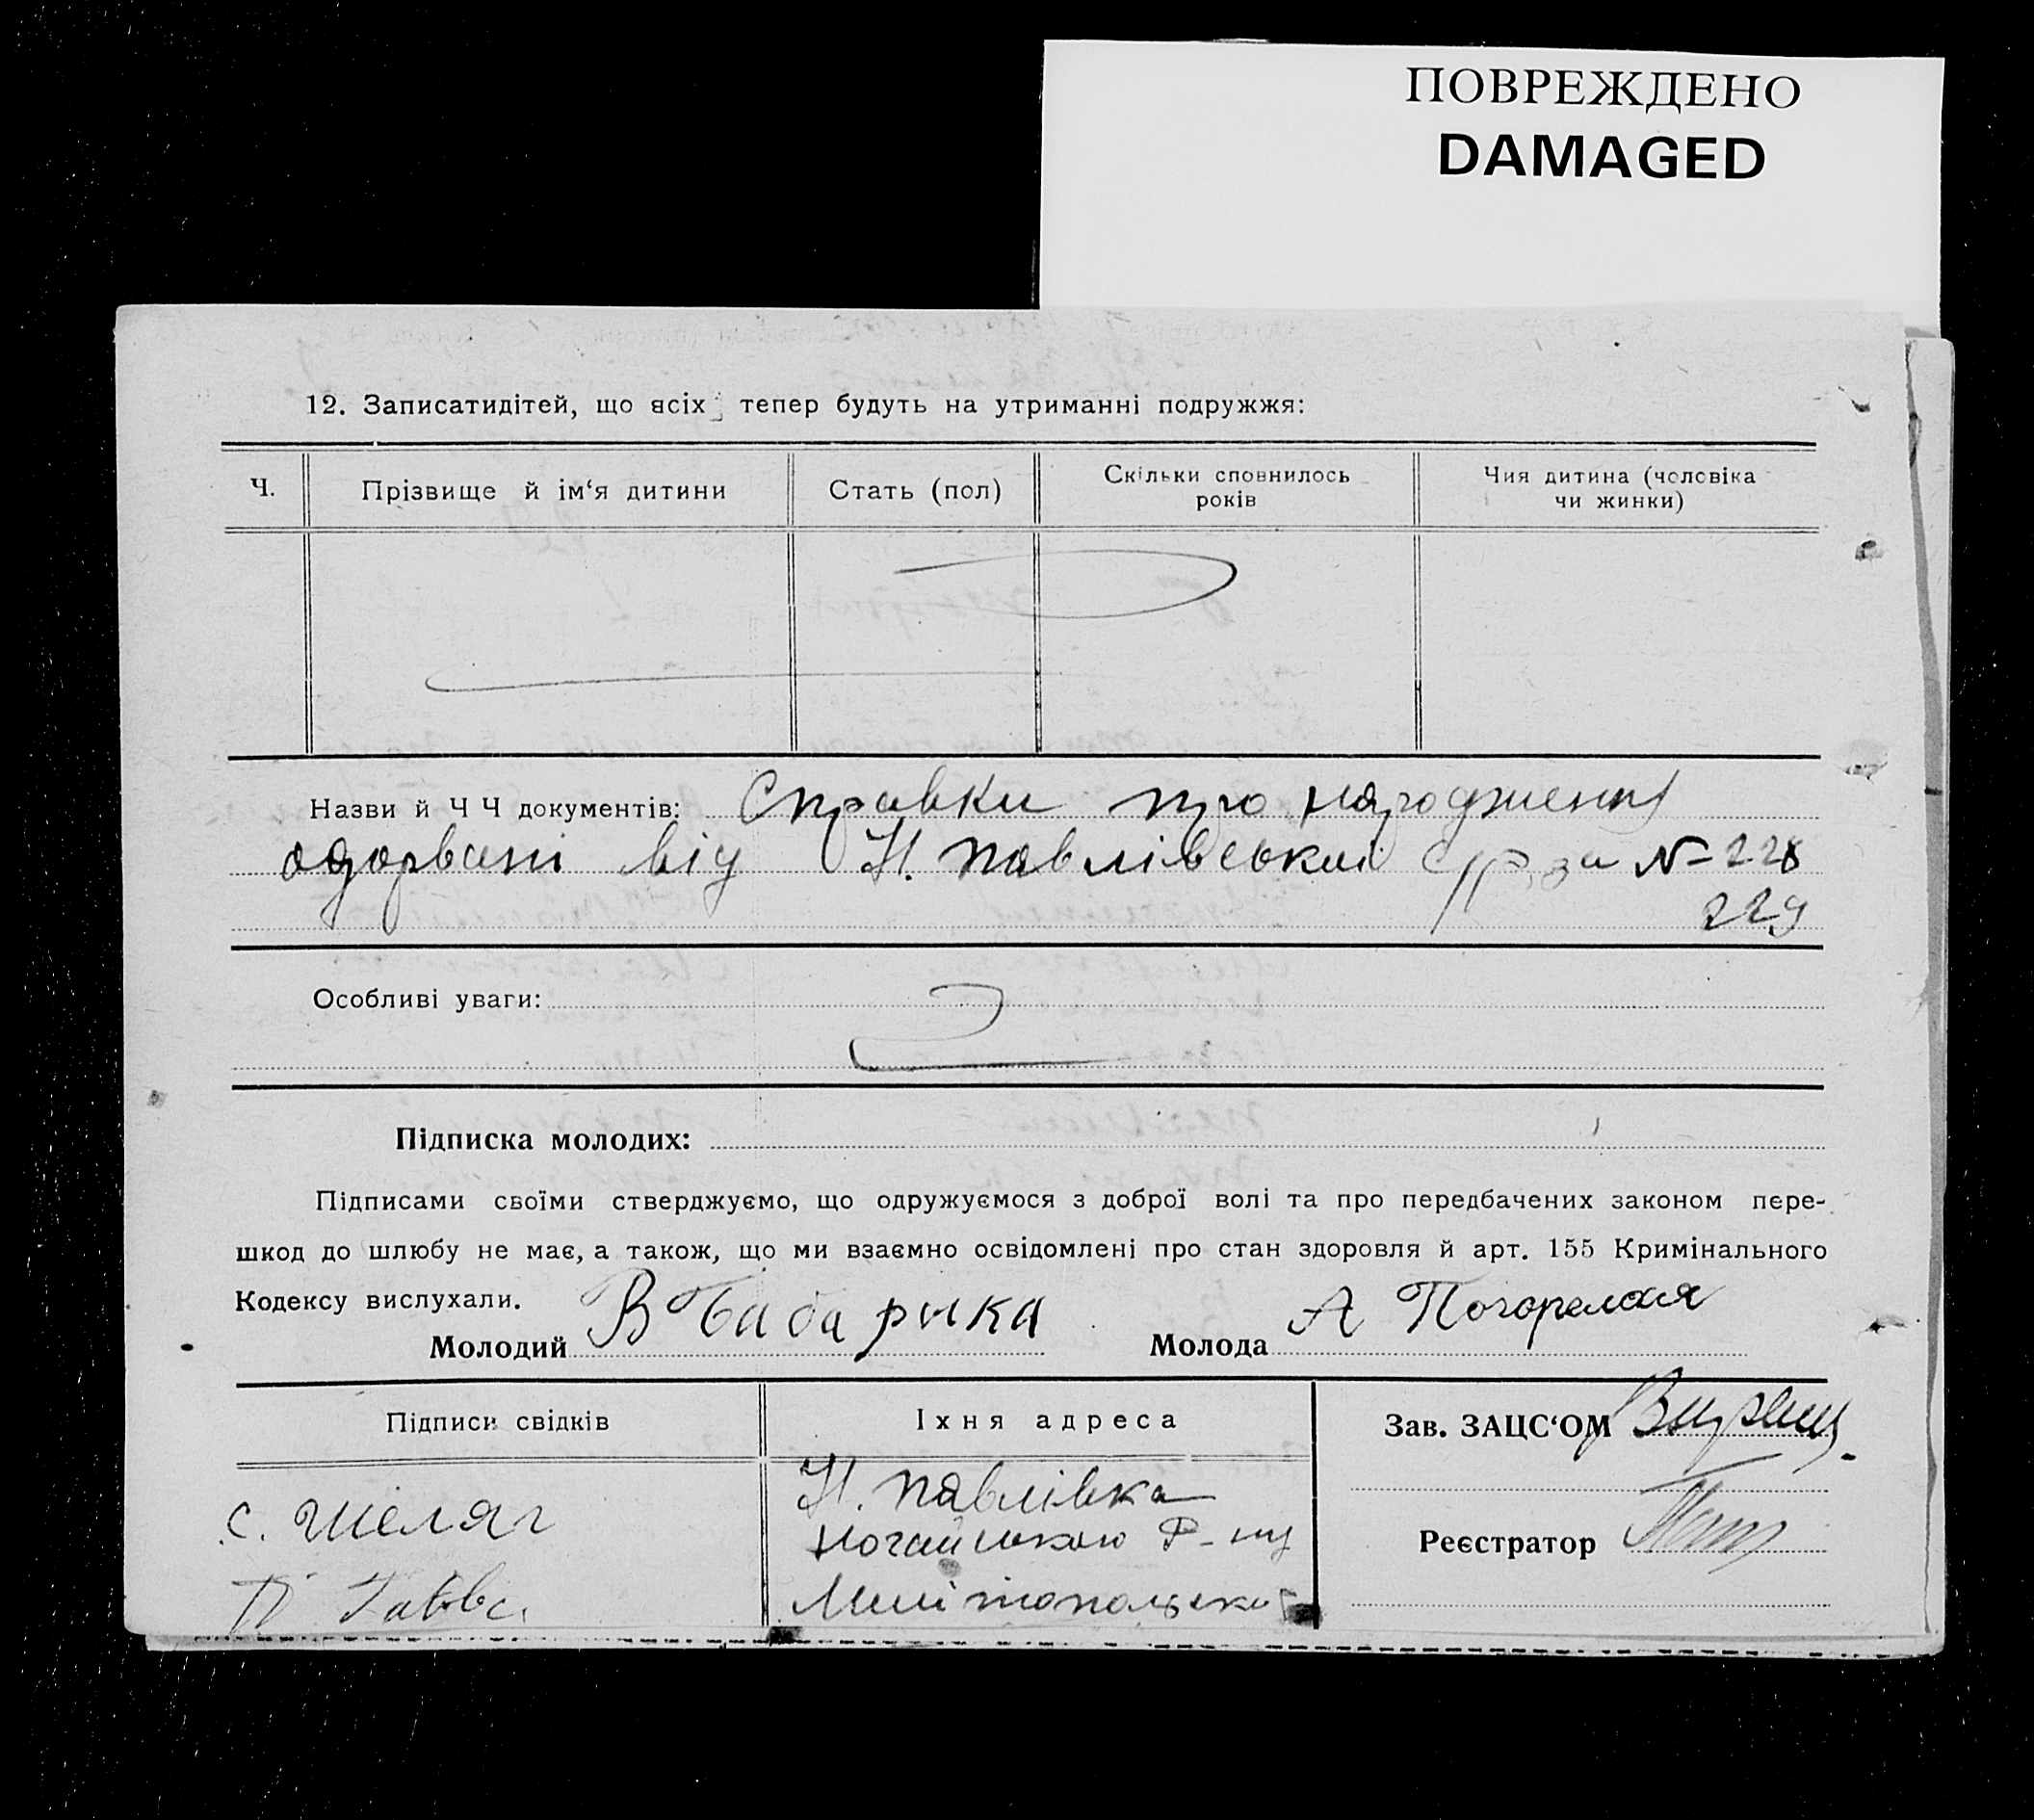 ПОВРЕЖДЕНО
DAMAGED
12. Записатидітей, що всіх тепер будуть на утриманні подружжя:
Ч.
Прізвище й ім‘я дитини
Стать (пол)
Скільки сповнилось
років
Чия дитина (чоловіка
чи жинки)
Назви й Ч Ч документів: Справки про народження
одорвані від Н. Павлівської с/р, за № 228
229
Особливі уваги:
Підписка молодих:
Підписами своїми стверджуємо, що одружуємося з доброї волі та про передбачених законом пере-
шкод до шлюбу не має, а також, що ми взаємно освідомлені про стан здоровля й арт. 155 Кримінального
Кодексу вислухали.
Молодий В Бабарыка
Молода А Погорелая
Підписи свідків
Іхня адреса
Зав. ЗАЦС‘ОМ
С. Шеляг
Н. Павлівка
Ногайського Р-ну
Реєстратор